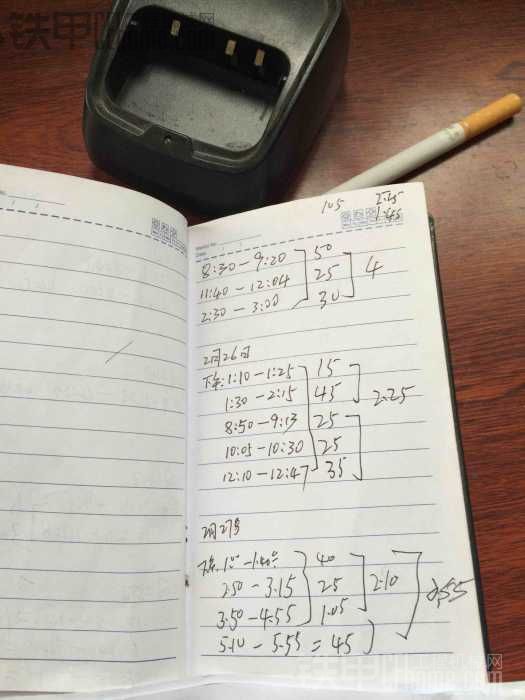 铁甲
105 2.25
1.45
8:30-9:20 50
11:40-12:04 25 4
2:30-3:00 30
2月26日
下午:1:10-1:25 15
1:30-2:15 45 2.25
8:50-9:13 25
10:05-10:30 25
12:10-12:47 35
2月27号
40
2:50-3.15 25 2.10
3.50-4.55 1.05
5.10-5.55=45
铁甲